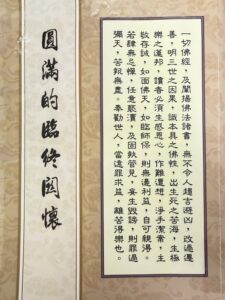 一切佛經，及闡揚佛法諸書，無不令人趨吉避凶，改過遷
善，明三世之因果，識本具之佛性，出生死之苦海，生極
樂之蓮邦，讀者必須生感恩心，作難遭想，淨手潔案，主
敬存誠，如面佛天，如臨師保，則無邊利益，自可親得。
若肆無忌憚，任意褻瀆，及固執管見，妄生毀謗，則罪過
彌天，苦報無盡。奉勸世人，當遠罪求益，離苦得樂也。
圓滿的臨終關懷